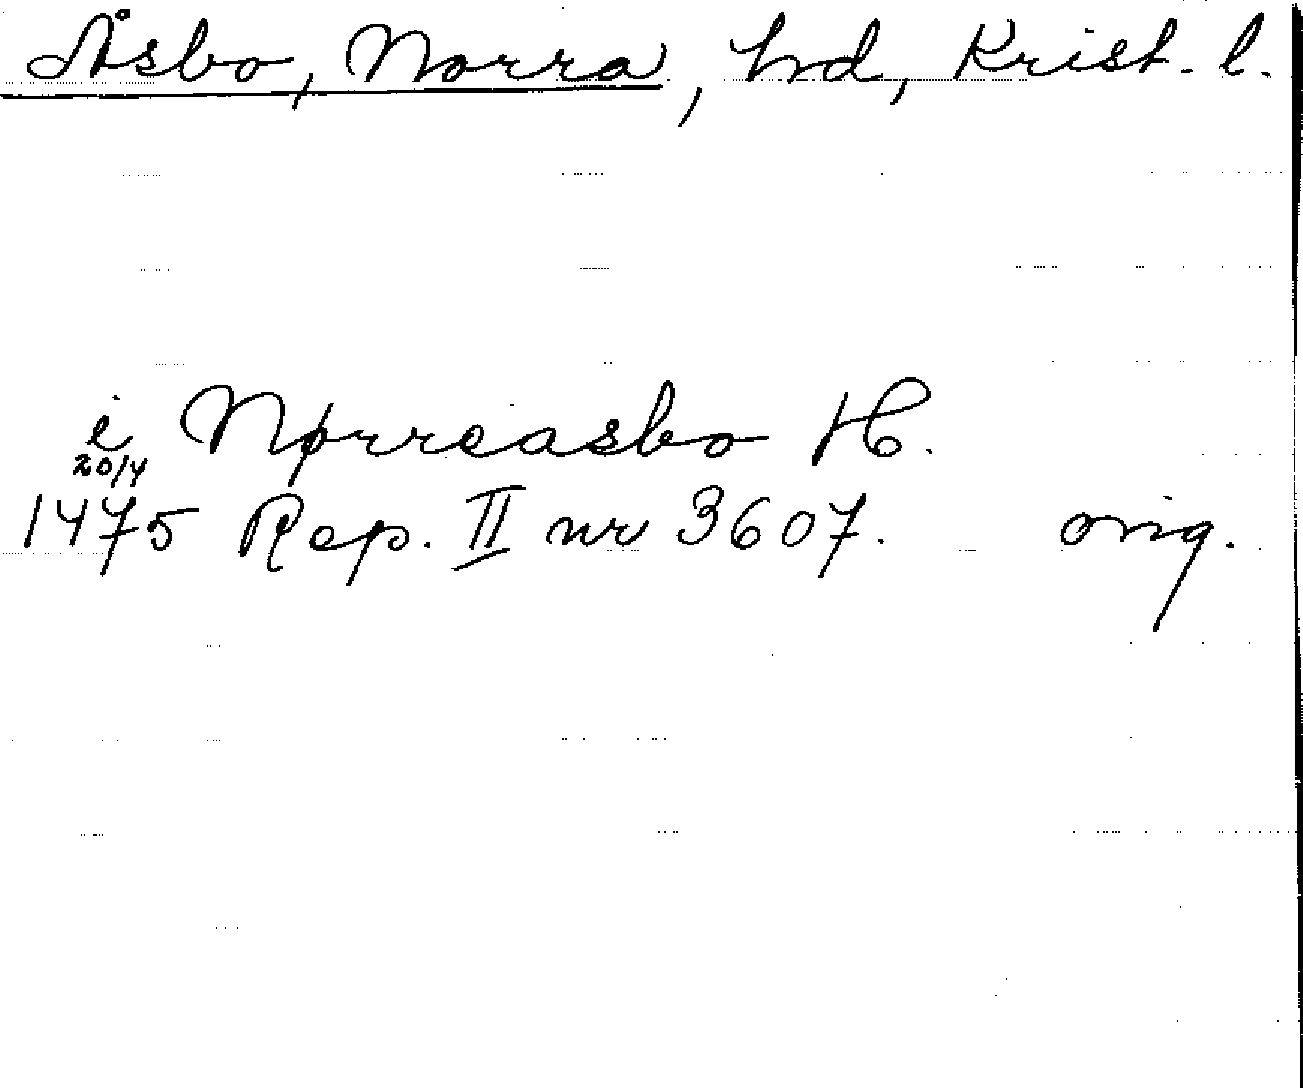 Åsbo, Norra, hrd, Krist. l.
i Nørreasbo H.
20/4
1475 Rep. II nr 3607. orig.